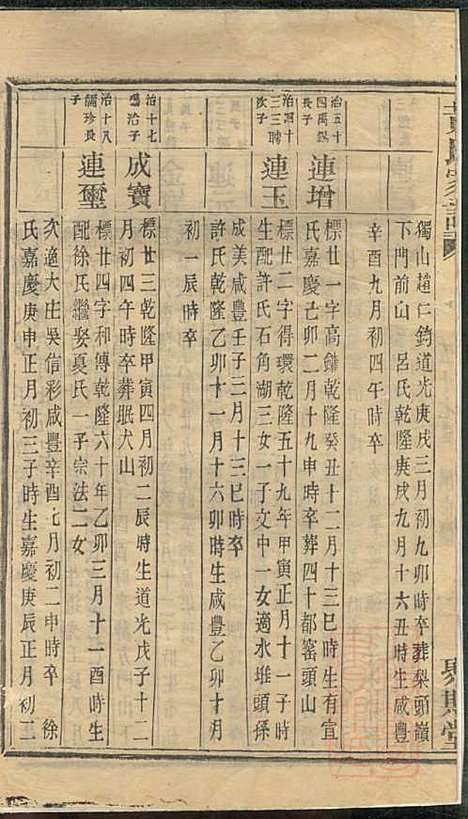 獨山趙仁鈞道光庚戌三月初九卯時卒葬梨頭嶺
下門前山 呂氏乾隆庚戌九月十六丑時生咸豐
辛酉九月初四午時卒
治五十
四禹錫
子
連增
標廿一字高鏽乾隆癸丑十二月十三巳時生有宜
氏嘉慶己卯二月十九申時卒葬四十都窑頭山
治四十
三三聘
次子
連玉
標廿二字得環乾隆五十九年甲寅正月十一子時
生配許氏石角湖三女一子文中一女適水堆頭孫
成美咸豐壬子三月十三巳時卒
許氏乾隆乙卯十一月十六卯時生咸豐乙卯十月
初一辰時卒
治十七
子
成寶
標廿三乾隆甲寅四月初二辰時生道光戊子十二
月初四午時卒葬眠犬山
治十八
彌珍長
子
連璽
標廿四字和傳乾隆六十年乙卯三月十一酉時生
配徐氏繼娶夏氏一子宗法二女
次適大庄吳信彩咸豐辛酉七月初二申時卒 徐
氏嘉慶庚申正月初三子時生嘉慶庚辰正月初三